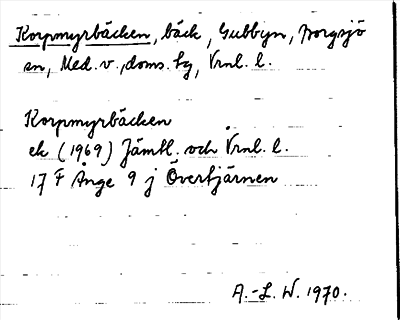 Korpmyrbäcken, bäck, Gubbyn, Borgsjö
sn, Med. v., doms. hg, Vrnl. l.
Korpmyrbäcken
ek (1969) Jämtl. och Vrnl. l.
17 F Ånge 9 j Övertjärnen
A.-L. W. 1970.